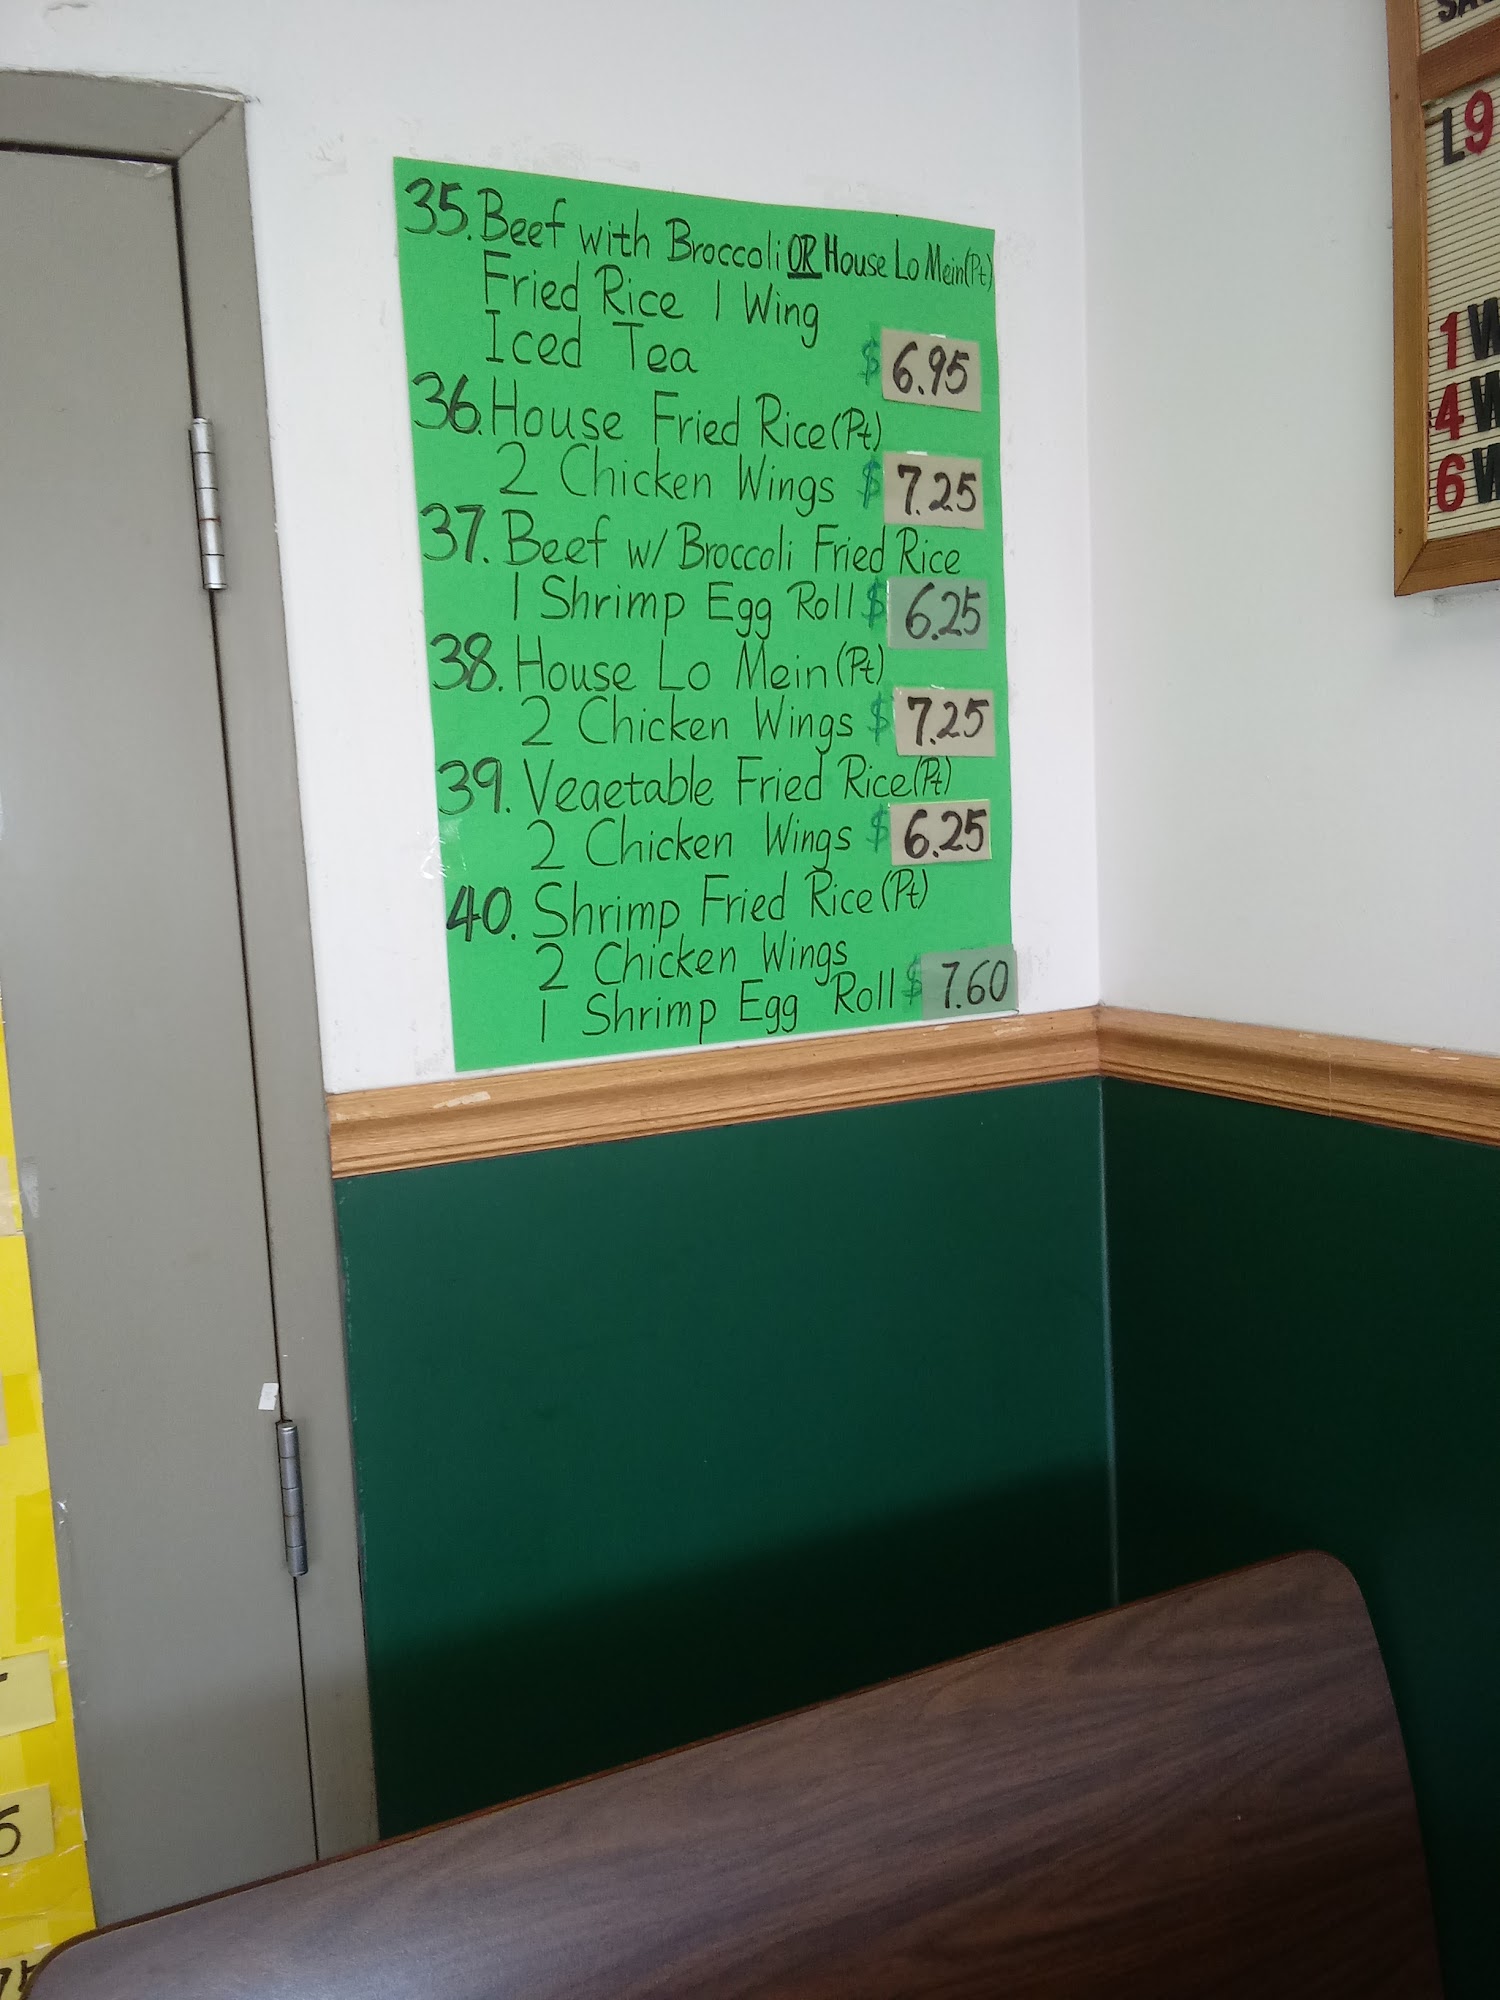 35. Beef with Broccoli OR House Lo Mein (Pt)
Fried Rice 1 Wing
Iced Tea $ 6.95
36. House Fried Rice (Pt)
2 Chicken Wings $ 7.25
37. Beef w/ Broccoli Fried Rice
1 Shrimp Egg Roll $ 6.25
38. House Lo Mein (Pt)
2 Chicken Wings $ 7.25
39. Vegetable Fried Rice (Pt)
2 Chicken Wings $ 6.25
40. Shrimp Fried Rice (Pt)
2 Chicken Wings
1 Shrimp Egg Roll $ 7.60
L9
1 W
4 W
6 W